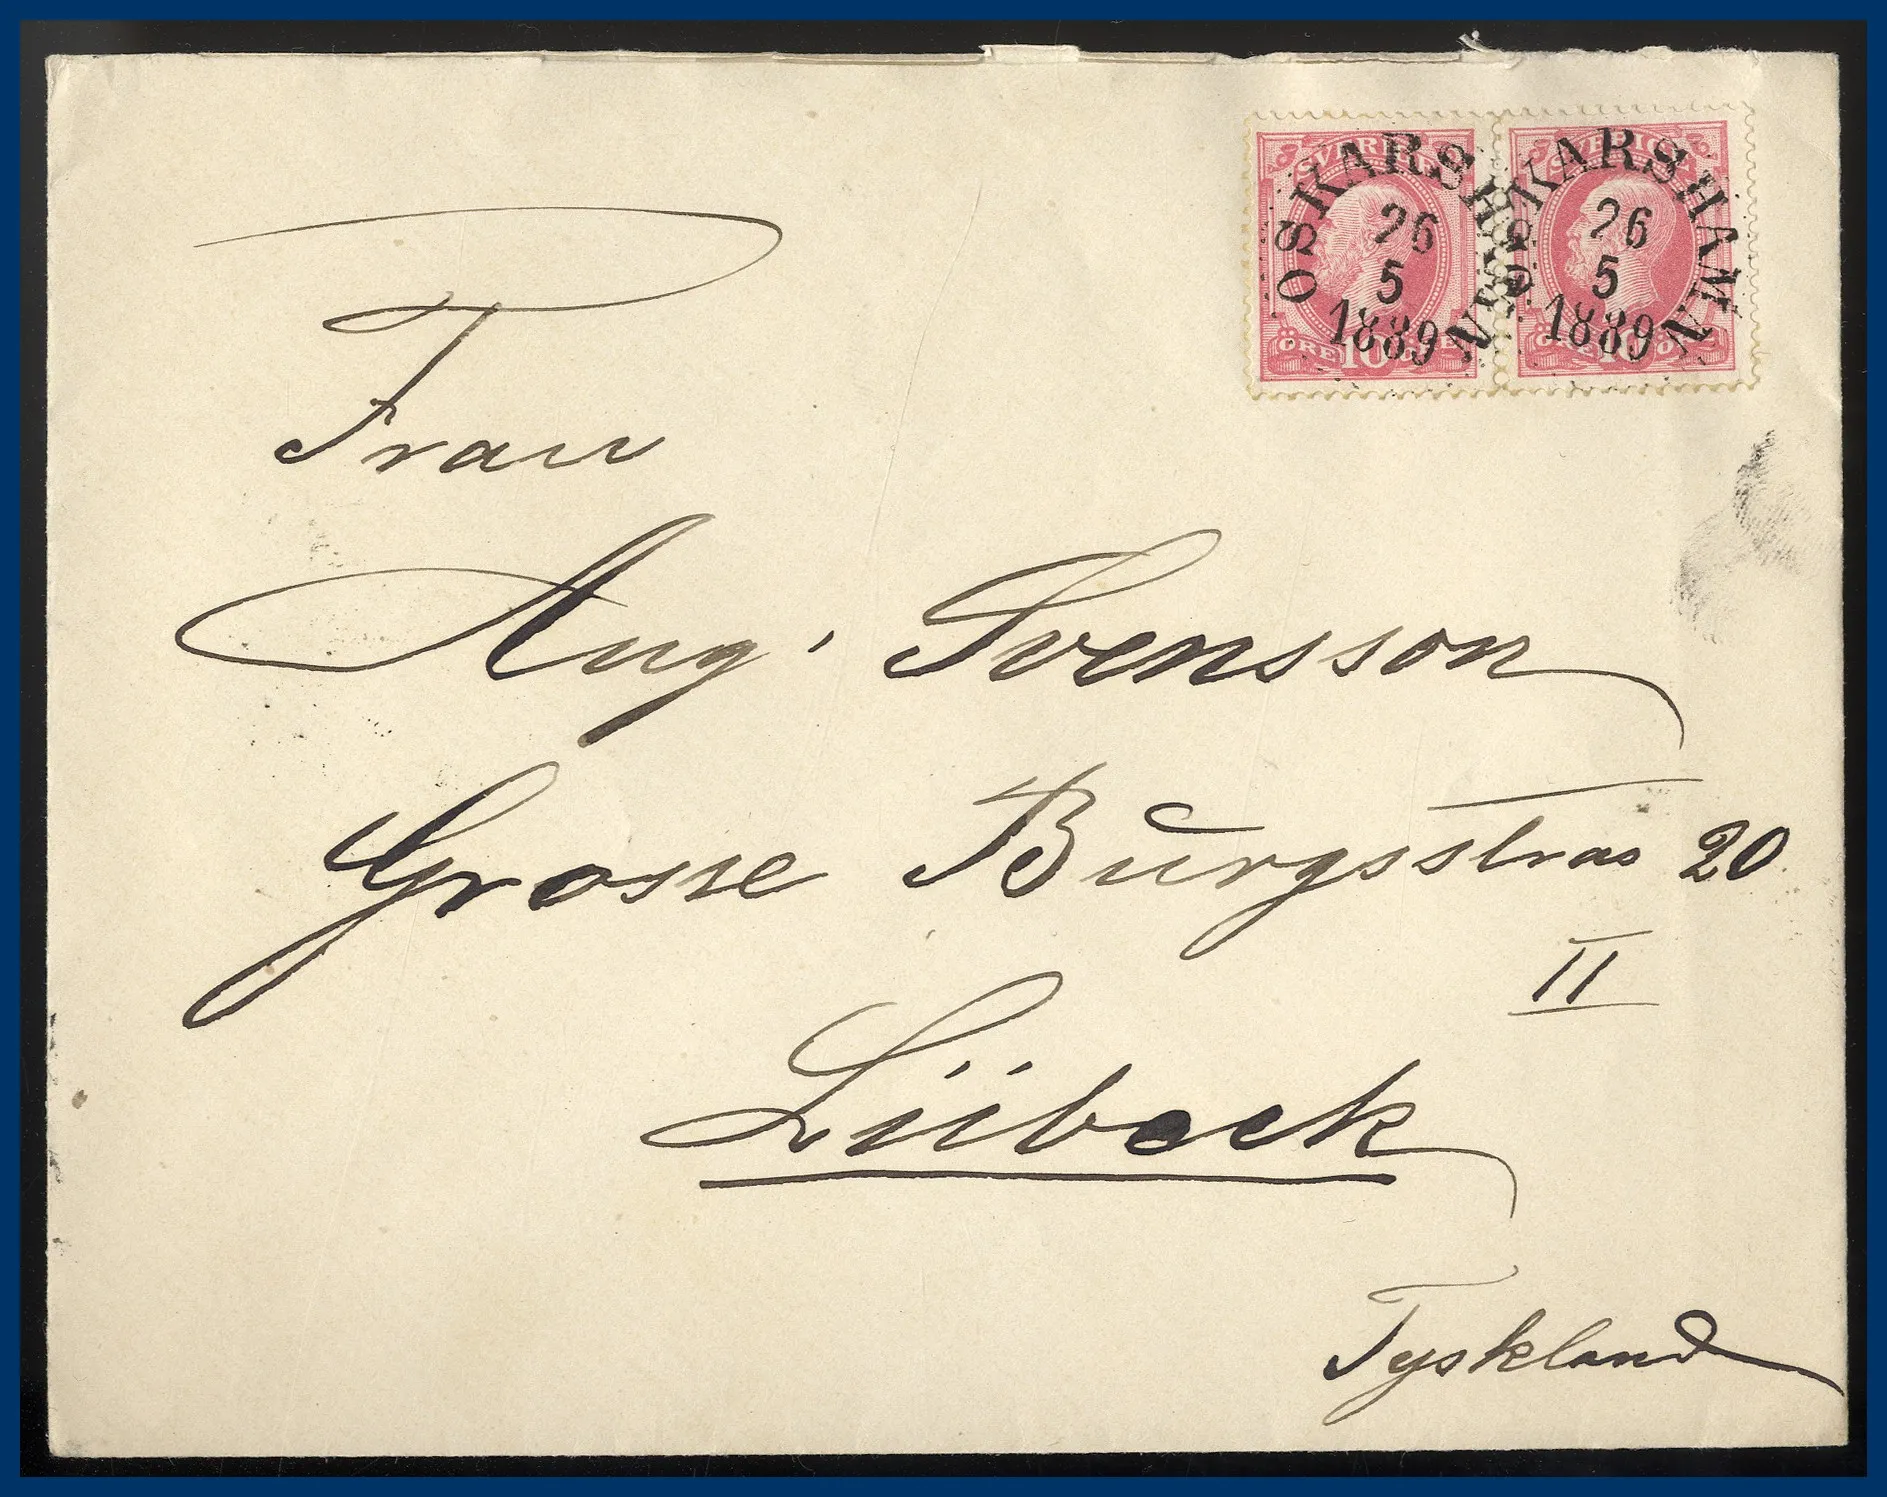 SVERIGE SVERIGE
OSKARSHAMN OSKARSHAMN
26 26
5 5
1889 1889
ÖRE 10 ÖRE ÖRE 10 ÖRE
Frau
Aug. Svensson
Grosse Burgsstras 20
II
Lübeck
Tyskland